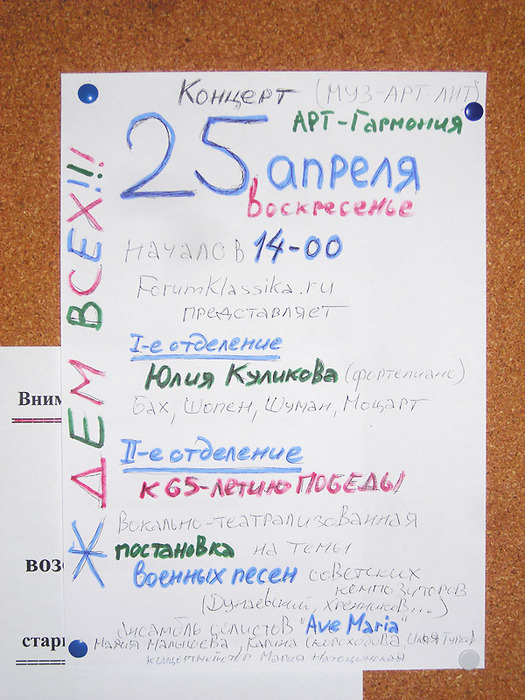 Концерт (МУЗ-АРТ ЛИТ)
АРТ-Гармония
25 апреля
воскресенье
Начало в 14-00
ForumKlassika.ru
представляет
I-е отделение
Юлия Куликова (фортепиано)
Бах, Шопен, Шуман, Моцарт
II-е отделение
к 65-летию ПОБЕДЫ
Вокально-театрализованная
постановка на темы
военных песен советских
композиторов
(Дунаевский, Хренников...)
Ансамбль солистов "Ave Maria"
Мария Малышева, Карина
концертмейстер Мария
ЖДЕМ ВСЕХ!!!
Вним
воз
стар